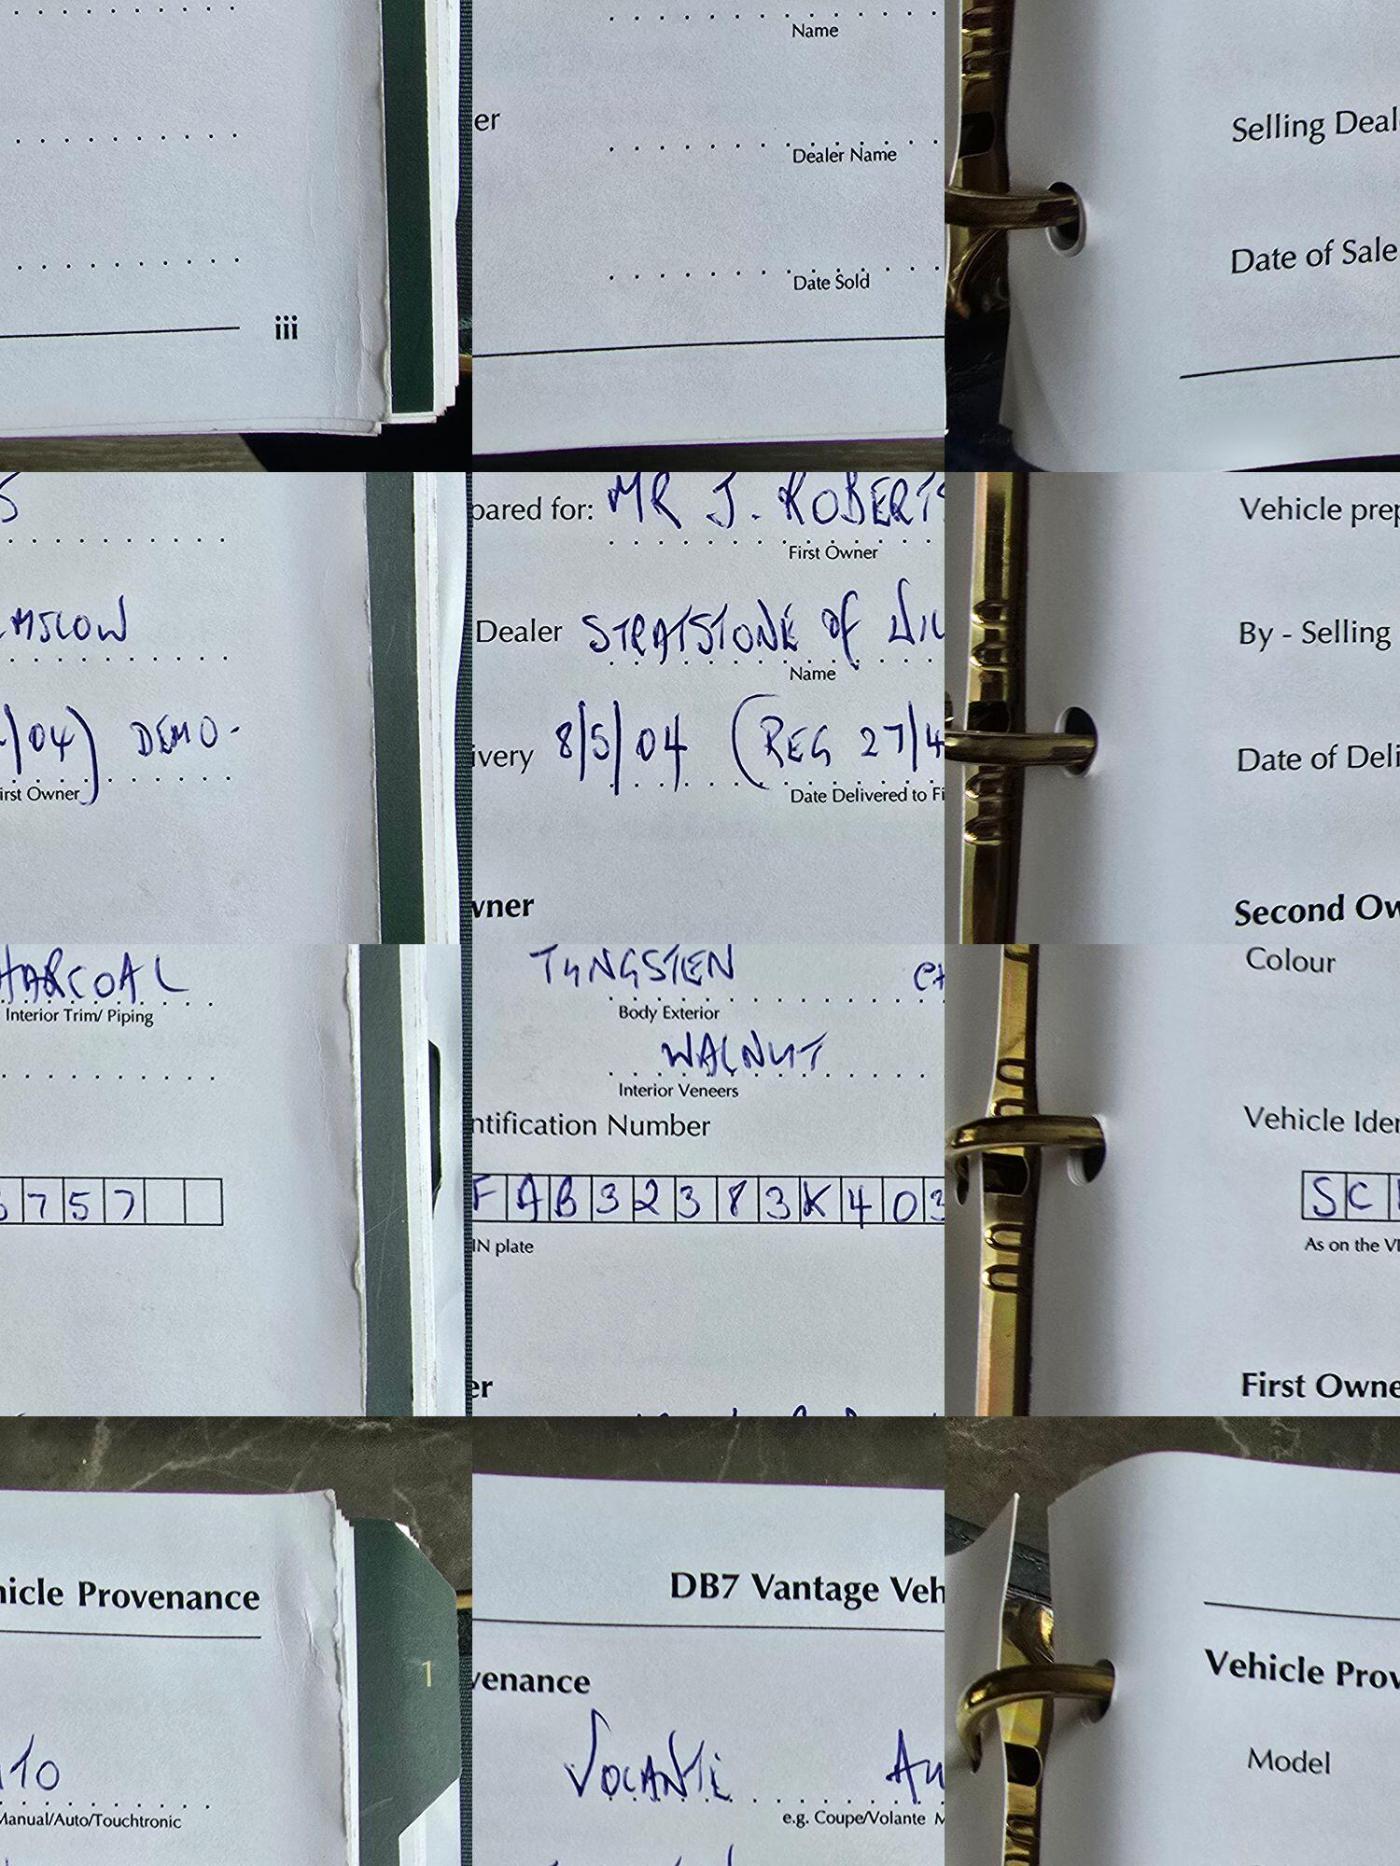 Name
er Selling Deal
Dealer Name
Date of Sale
Date Sold
iii
S pared for: MR J. ROBERTS Vehicle prep
First Owner
MSLOW Dealer STRATSTONE OF WIL By - Selling
Name
/04) DEMO- ivery 8/5/04 (REG 27/4 Date of Deli
irst Owner Date Delivered to Fi
wner Second Ow
HARCOAL TUNGSTEN CH Colour
Interior Trim/ Piping Body Exterior
WALNUT
Interior Veneers
ntification Number Vehicle Iden
757 FAB32383K403 SC
IN plate As on the VI
er First Owne
hicle Provenance DB7 Vantage Veh
1 venance Vehicle Prov
TO VOLANTE AU Model
Manual/Auto/Touchtronic e.g. Coupe/Volante M